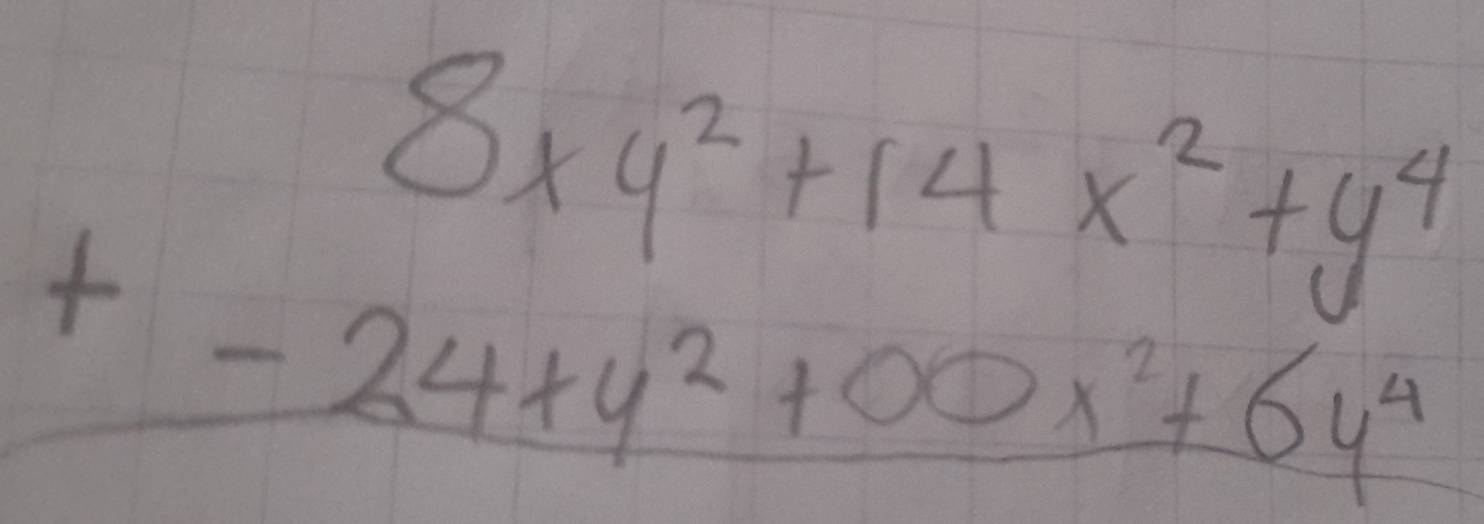 8xy² + 14x² + y⁴
+ - 24+y² + 00x² + 6y⁴